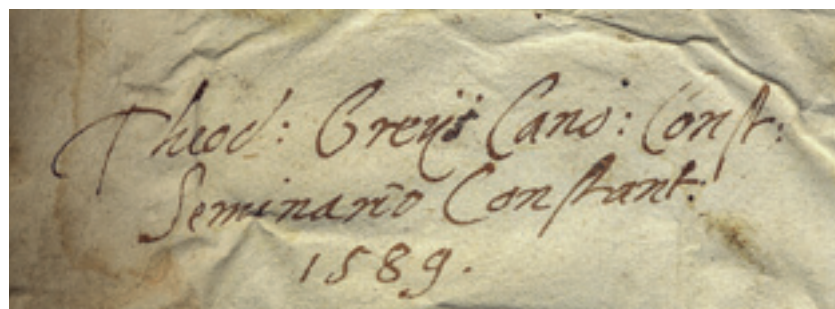 Theod: Greÿs Cano: Const:
Seminario Constant:
1589.